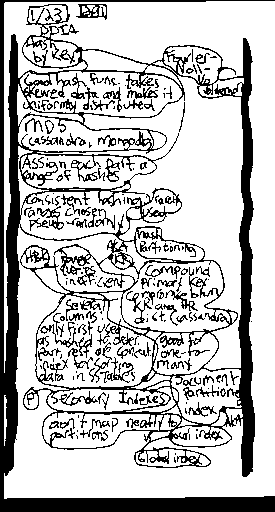 1/23
DDIA
Hash
by Key
Fowler-
Noll-
Vo
Good hash func. takes
skewed data and makes it
uniformly distributed
MD5
(cassandra, mongodb)
Assign each part. a
range of hashes
Consistent hashing
ranges chosen
pseudo-random
rarely
used
AKA
Hash
Partitioning
range
queries
inefficient
Compound
primary key
compromise btwn
KR and HR
dist. (cassandra)
Several
columns
only first used
as hashed to deter.
part, rest are concat.
index for sorting
data in SSTables
good for
one-to-
many
Secondary Indexes
Document
Partitioned
index
AKA
don't map neatly to
partitions
local index
Global index